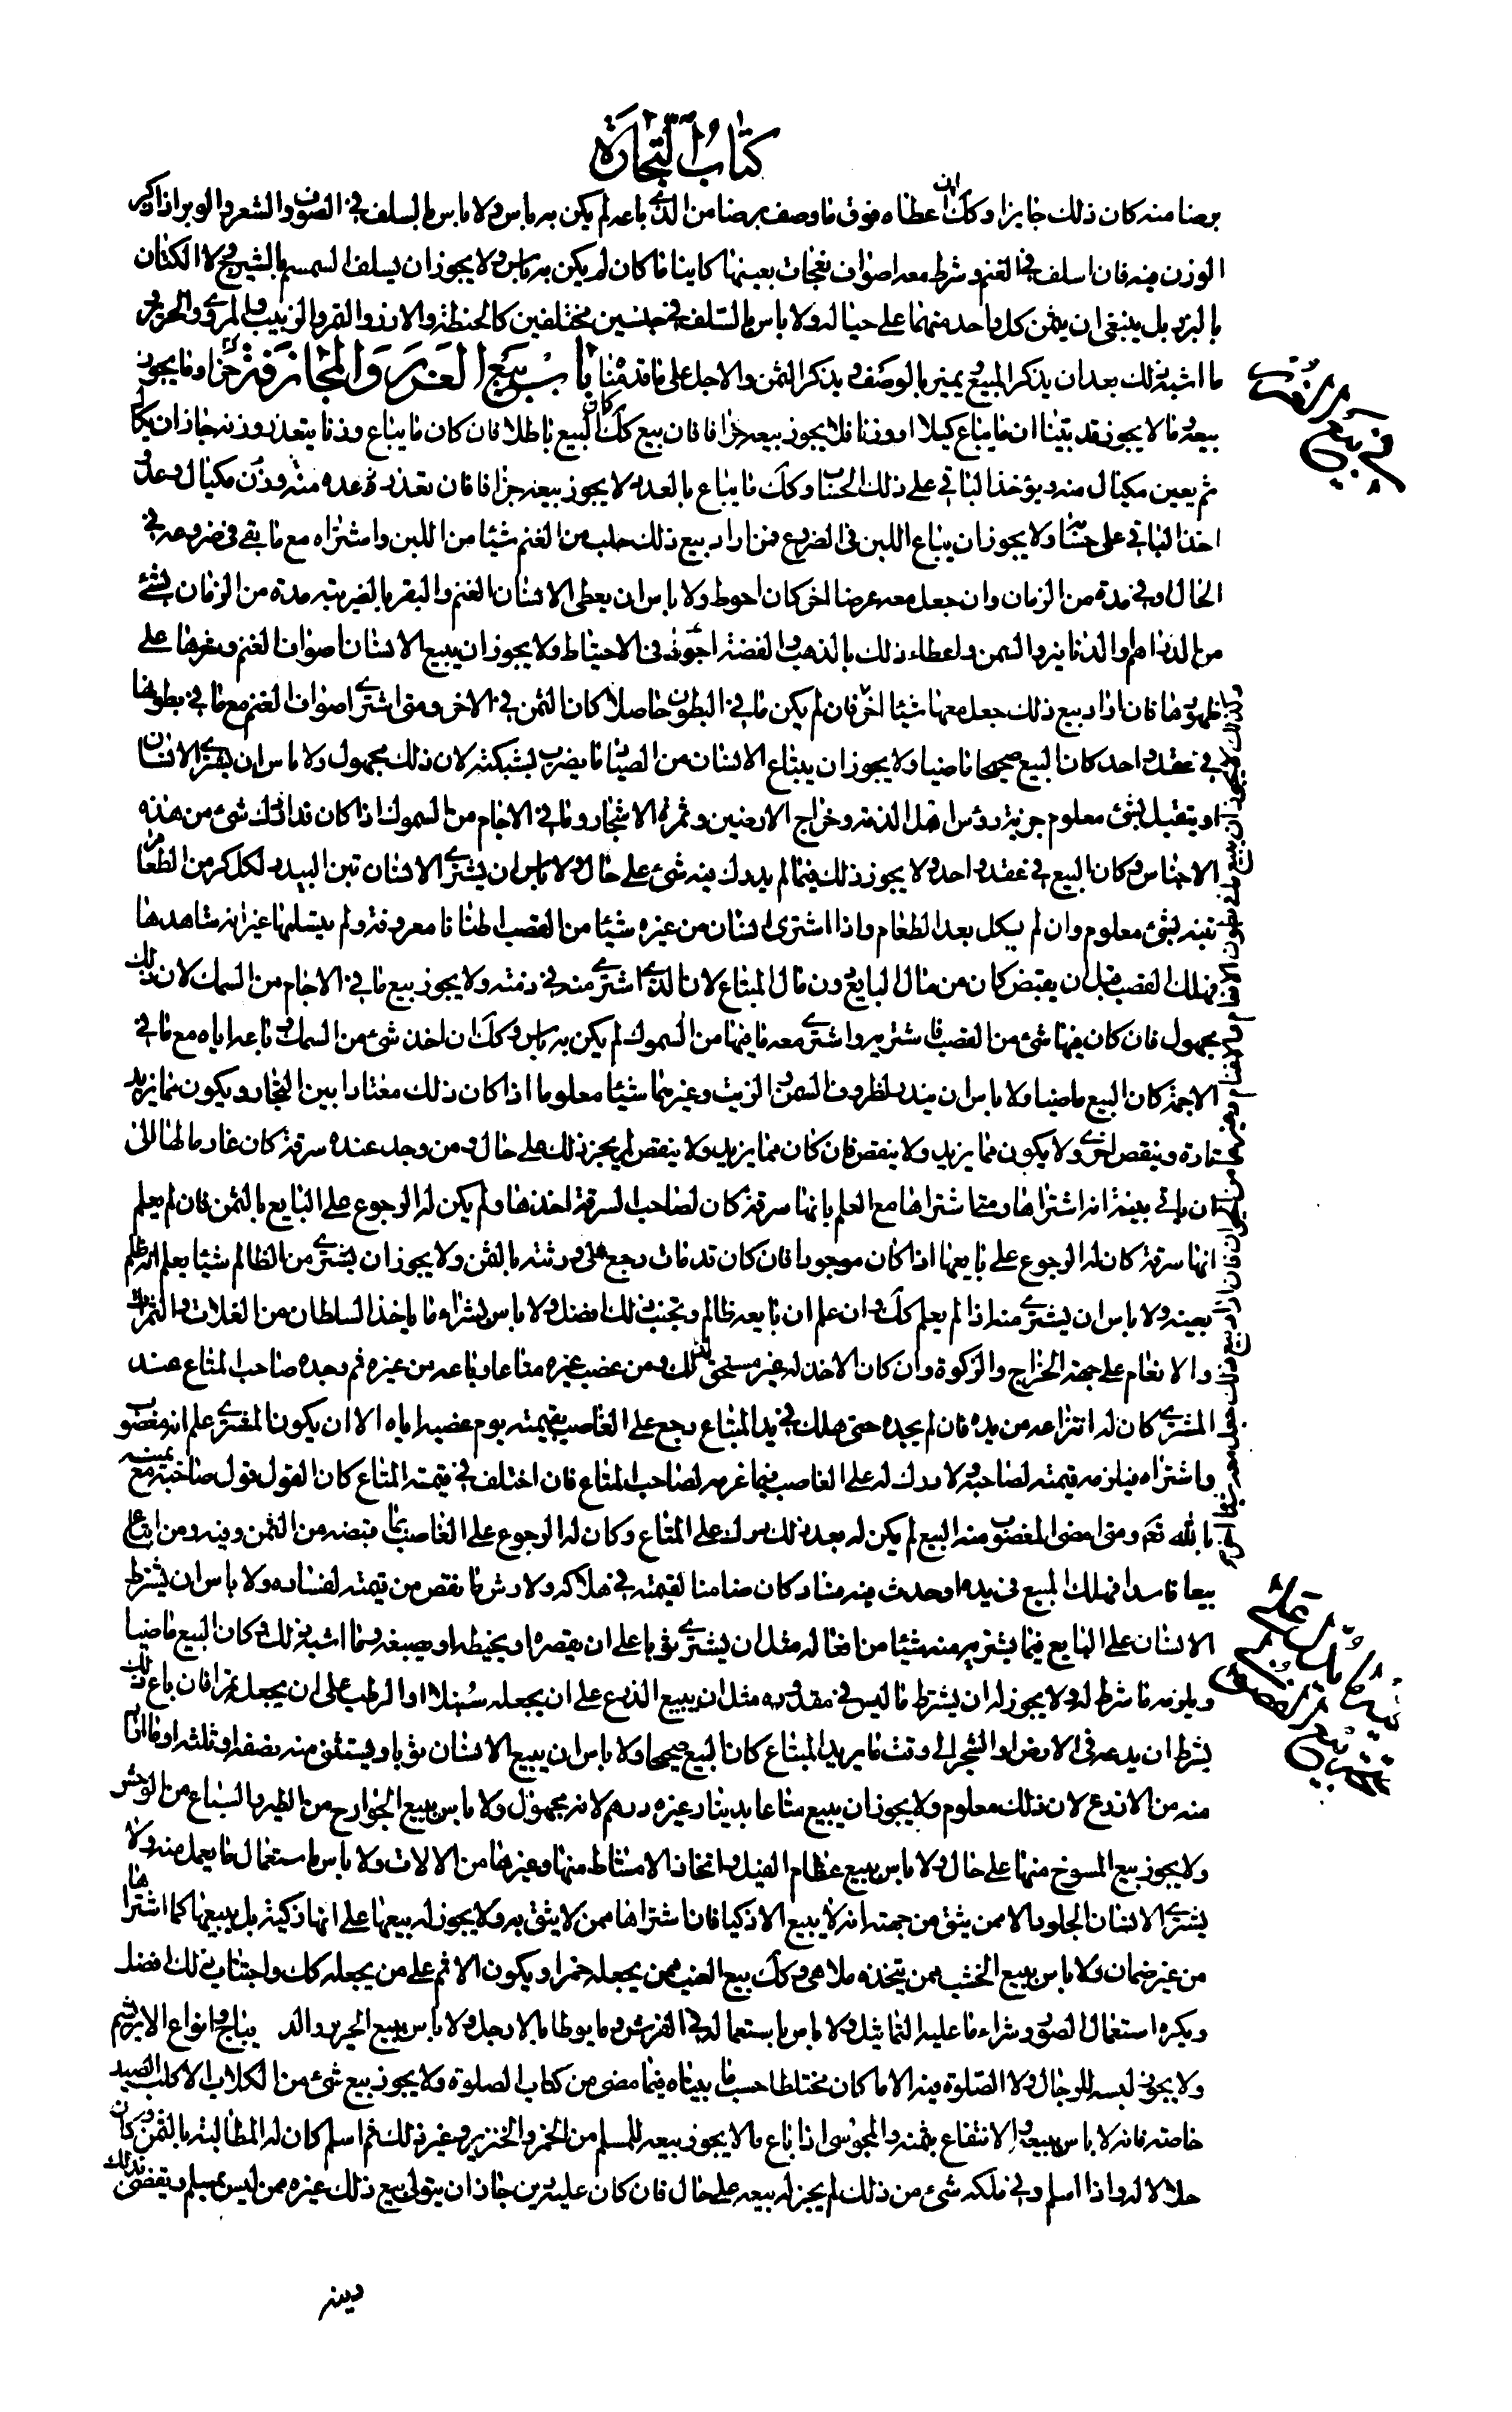 كتاب التجارة
برضا منه كان ذلك جايزا وكك ان اعطاه فوق ما وصف برضا من الذى باعه لم يكن به باس ولا باس بالسلف فى الصوف والشعر والوبر اذا ذكر
الوزن فيه فان اسلف فى الغنم وشرط معه اصواف نعجات بعينها كاينا ما كان لم يكن به باس ولا يجوز ان يسلف السمسم بالشيرج ولا الكتان
بالبزر بل ينبغى ان يثمن كل واحد منهما على حياله ولا باس بالسلف فى جنسين مختلفين كالحنطة والارز والتمر والزبيب والمروى والحرير و
ما اشبه ذلك بعد ان يذكر المبيع ويميز بالوصف ويذكر الثمن والاجل على ما قدمناه باب بيع الغرر والمجازفة وما يجوز
بيعه وما لا يجوز قد بينا ان ما يباع كيلا او وزنا فلا يجوز بيعه جزافا فان بيع كك كان البيع باطلا فان كان ما يباع وزنا يتعذر وزنه جاز ان يكال
ثم يعين مكيال منه ويؤخذ الباقى على ذلك الحساب وكك ما يباع بالعدد لا يجوز بيعه جزافا فان تعذر عده وزن منه مكيال وعد و
اخذ الباقى على حسابه ولا يجوز ان يباع اللبن فى الضروع فمن اراد بيع ذلك حلب من الغنم شيئا من اللبن واشتراه مع ما بقى فى ضروعه فى
الحال او فى مدة من الزمان وان جعل معه عرضا اخر كان احوط ولا باس ان يعطى الانسان الغنم والبقر بالضريبة مدة من الزمان بشئ
من الدراهم والدنانير والسمن واعطاء ذلك بالذهب والفضة اجود فى الاحتياط ولا يجوز ان يبيع الانسان اصواف الغنم وشعرها على
ظهورها فان اراد بيع ذلك جعل معها شيئا اخر فان لم يكن ما فى البطون حاصلا كان الثمن فى الاخر ومتى اشترى اصواف الغنم مع ما فى بطونها
فى عقد واحد كان البيع صحيحا ماضيا ولا يجوز ان يبتاع الانسان من الصياد ما يضرب بشبكته لان ذلك مجهول ولا باس ان يشترى الانسان
او يتقبل بشئ معلوم جزية رؤس اهل الذمة وخراج الارضين وثمرة الاشجار وما فى الاجام من السموك اذا كان قد ادرك شئ من هذه
الاجناس وكان البيع فى عقد واحد ولا يجوز ذلك فيما لم يدرك منه شئ على حال ولا باس ان يشترى الانسان تبن البيدر لكل كر من الطعام
تبنه بشئ معلوم وان لم يكل بعد الطعام واذا اشترى انسان من غيره شيئا من القصب اطنانا معروفة ولم يتسلمها غير انه شاهدها
فهلك القصب قبل ان يقبض كان من مال البايع دون مال المبتاع لان الذى اشترى منه فى ذمته ولا يجوز بيع ما فى الاجام من السمك لان ذلك
مجهول فان كان فيها شئ من القصب فاشتريه واشترى معه ما فيها من السموك لم يكن به باس وكك ان اخذ شئ من السمك وباعه اياه مع ما فى
الاجمة كان البيع ماضيا ولا باس ان يندر لظروف السمن والزيت وغيرهما شيئا معلوما اذا كان ذلك معتادا بين التجار ويكون مما يزيد
تارة وينقص اخرى ولا يكون مما يزيد ولا ينقص فان كان مما يزيد ولا ينقص لم يجز ذلك على حال ومن وجد عنده سرقة كان غارما لها الا
ان ياتى ببينة انه اشتراها ومتى اشتراها مع العلم بانها سرقة كان لصاحب السرقة اخذها ولم يكن له الرجوع على البايع بالثمن فان لم يعلم
انها سرقة كان له الرجوع على بايعها اذا كان موجودا فان كان قد مات رجع على ورثته بالثمن ولا يجوز ان يشترى من الظالم شيئا يعلم انه ظلم
بعينه ولا باس ان يشترى منه اذا لم يعلم كك وان علم ان بايعه ظالم وتجنب ذلك افضل ولا باس بشراء ما ياخذ السلطان من الغلات والثمرات
والانعام على جهة الخراج والزكوة وان كان الاخذ له غير مستحق لذلك ومن غصب غيره متاعا وباعه من غيره ثم وجده صاحب المتاع عند
المشترى كان له انتزاعه من يده فان لم يجده حتى هلك فى يد المبتاع رجع على الغاصب بقيمته يوم غصبه اياه الا ان يكون المشترى علم انه مغصوب
واشتراه فيلزمه قيمته لصاحبه ولا درك له على الغاصب فيما غرمه لصاحب المتاع فان اختلف فى قيمة المتاع كان القول قول صاحبه مع يمينه
بالله تعم ومتى امضى المغصوب منه البيع لم يكن له بعد ذلك درك على المتاع وكان له الرجوع على الغاصب بما قبضه من الثمن وفيه ومن ابتاع
بيعا فاسدا فهلك المبيع فى يده او حدث فيه فساد كان ضامنا لقيمته فى هلاكه ولارش ما نقص من قيمته لفساده ولا باس ان يشترط
الانسان على البايع فيما يشتريه منه شيئا من افعاله مثل ان يشترى ثوبا على ان يقصره او يخيطه او يصبغه وما اشبه ذلك وكان البيع ماضيا
ويلزمه ما شرط له ولا يجوز له ان يشترط ما ليس فى مقدوره مثل ان يبيع الزرع على ان يجعله سنبلا او الرطب على ان يجعله تمرا فان باع ذلك
بشرط ان يدعه فى الارض او الشجر الى وقت ما يريد المبتاع كان البيع صحيحا ولا باس ان يبيع الانسان ثوبا ويستثنى منه نصفه او ثلثه او ما اراد
منه من الاذرع لان ذلك معلوم ولا يجوز ان يبيع متاعا بدينار غير درهم لانه مجهول ولا باس ببيع الجوارح من الطير والسباع من الوحش
ولا يجوز بيع المسوخ منها على حال ولا باس ببيع عظام الفيل واتخاذ الامشاط منها وغيرها من الالات ولا باس باستعمال ما يعمل منه ولا
يشترى الانسان الجلود الا ممن يثق من جهته انه لا يبيع الا ذكيا فان اشتراها ممن لا يثق به فلا يجوز له بيعها على انها ذكية بل يبيعها كما اشتراها
من غير ضمان ولا باس ببيع الخشب ممن يتخذه ملاهى وكك بيع العنب ممن يجعله خمرا ويكون الاثم على من يجعله كك واجتناب ذلك افضل
ويكره استعمال الصور وشراء ما عليه التماثيل ولا باس باستعماله فى الفرش وما يوطا بالارجل ولا باس ببيع الحرير والديباج وانواع الابريشم
ولا يجوز لبسه للرجال ولا الصلوة فيه الا ما كان مختلطا حسب ما بيناه فيما مضى من كتاب الصلوة ولا يجوز بيع شئ من الكلاب الا كلب الصيد
خاصة فانه لا باس ببيعه والانتفاع بثمنه والمجوسى اذا باع ما لا يجوز بيعه للمسلم من الخمر والخنزير وغير ذلك ثم اسلم كان له المطالبة بالثمن وكان
حلالا له واذا اسلم وفى ملكه شئ من ذلك لم يجز له بيعه على حال فان كان عليه دين جاز ان يتولى بيع ذلك غيره ممن ليس بمسلم ويقضى بذلك
دينه